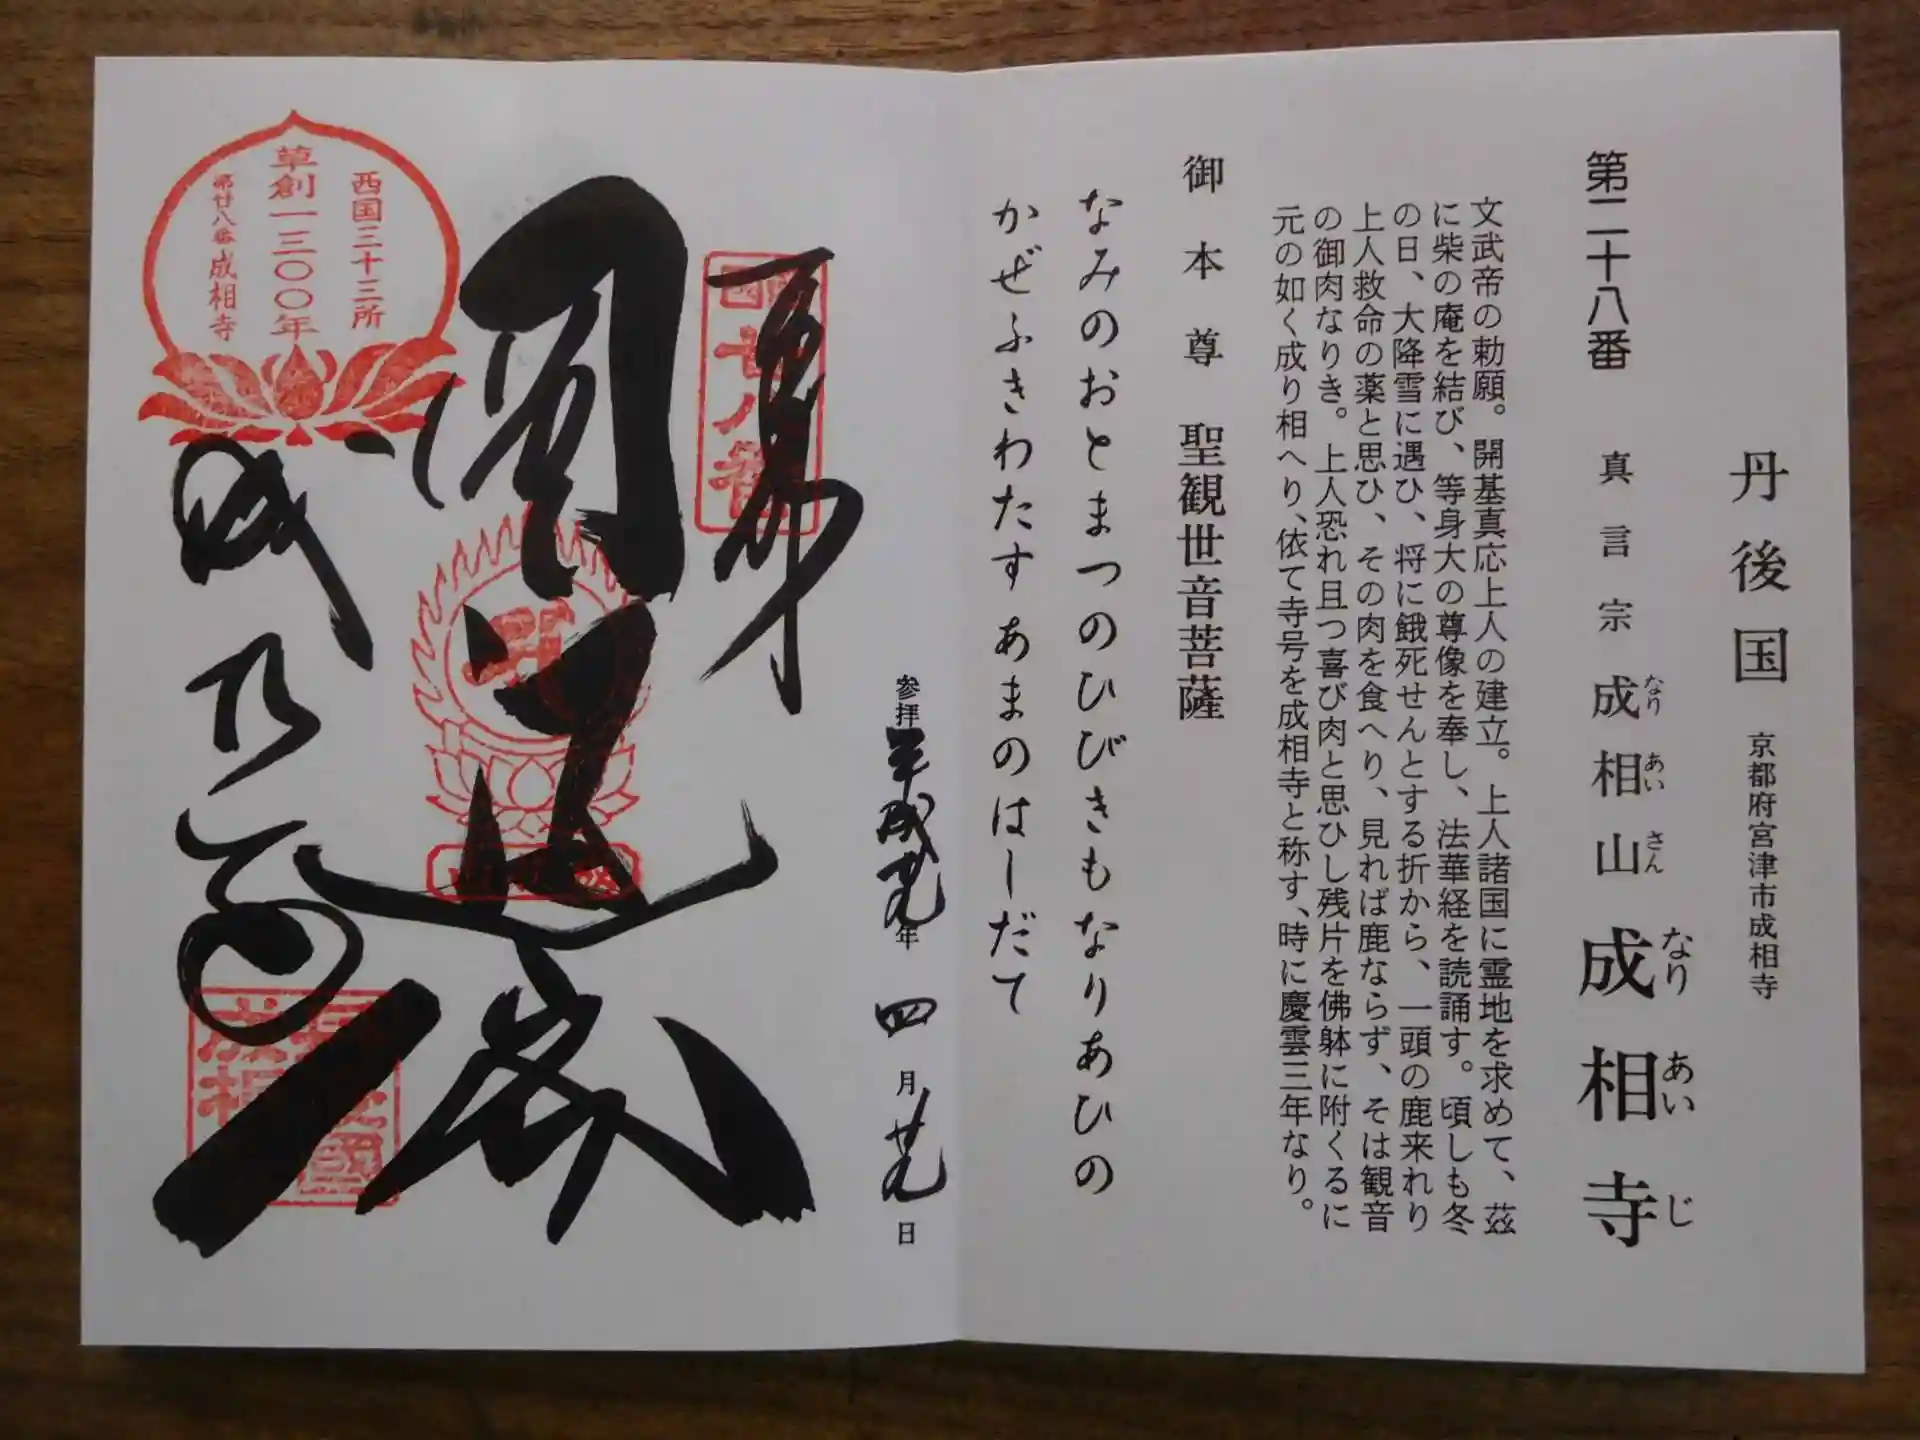 丹後国 京都府宮津市成相寺
第二十八番 真言宗 成相山 成相寺
なり あい さん なり あい じ
文武帝の勅願。開基真応上人の建立。上人諸国に霊地を求めて、茲
に柴の庵を結び、等身大の尊像を奉し、法華経を読誦す。頃しも冬
の日、大降雪に遇ひ、将に餓死せんとする折から、一頭の鹿来れり
上人救命の薬と思ひ、その肉を食へり、見れば鹿ならず、そは観音
の御肉なりき。上人恐れ且つ喜び肉と思ひし残片を佛躰に附くるに
元の如く成り相へり、依て寺号を成相寺と称す、時に慶雲三年なり。
御本尊 聖観世音菩薩
なみのおとまつのひびきもなりあひの
かぜふきわたすあまのはしだて
参拝平成廿九年 四月廿九日
西国廿八番
西国三十三所
草創一三〇〇年
第廿八番成相寺
成相寺